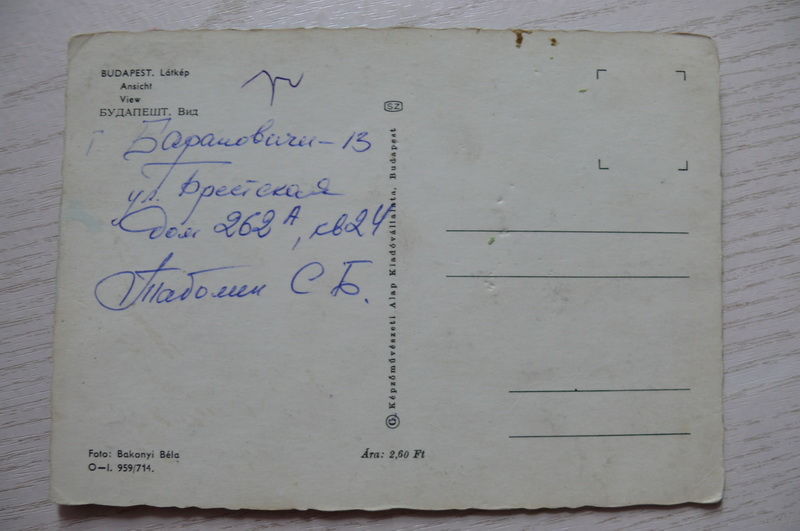 BUDAPEST. Látkép
Ansicht
View
БУДАПЕШТ. Вид
г Барановичи-13
ул. Брестская
дом 262А, кв24
С Б.
SZ
Képzőművészeti Alap Kiadóvállalata, Budapest
Foto: Bakonyi Béla
O—I. 959/714.
Ára: 2,60 Ft